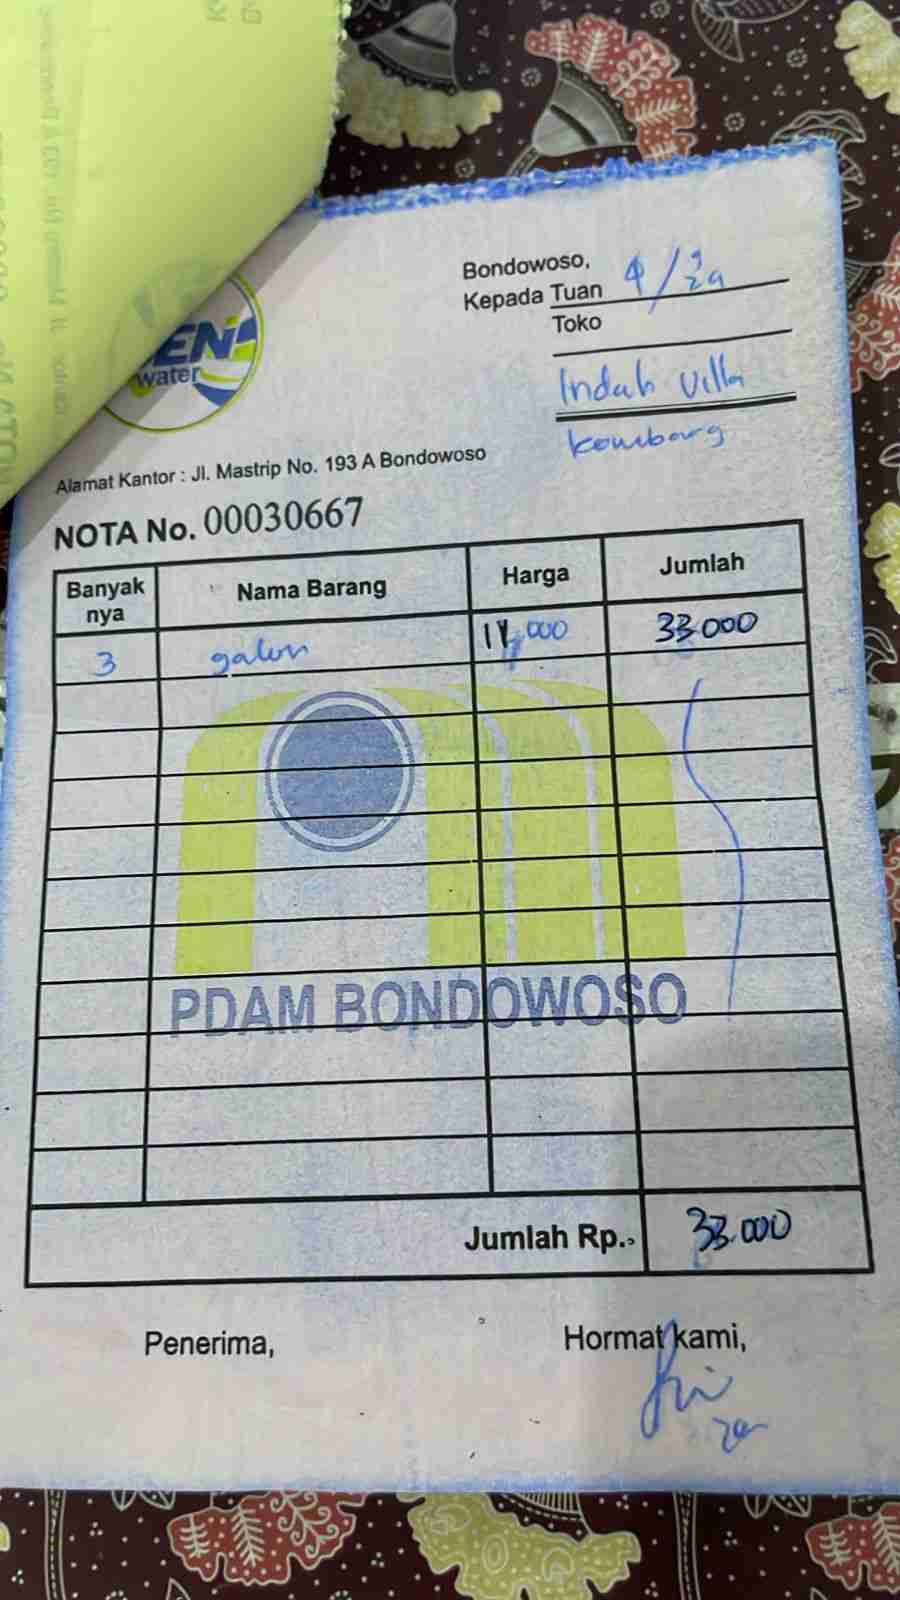 Bondowoso,
Kepada Tuan
Toko
Indah Villa
kembang
EN
water
Alamat Kantor : Jl. Mastrip No. 193 A Bondowoso
NOTA No. 00030667
Banyak nya Nama Barang Harga Jumlah
3 galon 11,000 33.000
PDAM BONDOWOSO
Jumlah Rp. 33.000
Penerima, Hormat kami,